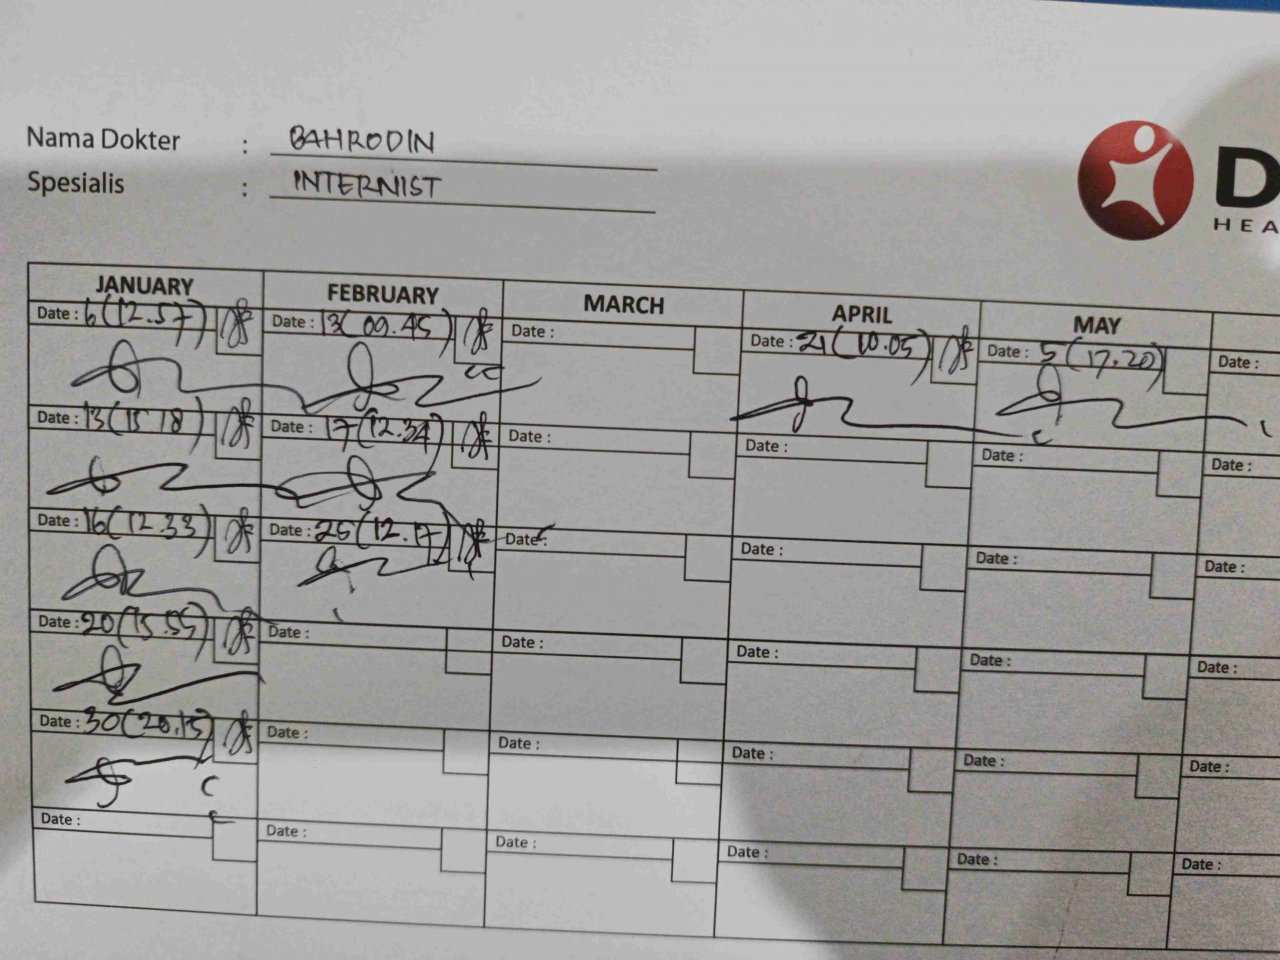 Nama Dokter : BAHRODIN
Spesialis : INTERNIST
D
HEA
JANUARY FEBRUARY MARCH APRIL MAY
Date : 6 (12.57) Date : 13 (09.45) Date : Date : 21 (10.05) Date : 5 (17.20) Date :
Date : 13 (15 18) Date : 17 (12.34) Date : Date : Date : Date :
Date : 16 (12.33) Date : 25 (12.17) Date : Date : Date : Date :
Date : 20 (15.55) Date : Date : Date : Date : Date :
Date : 30 (20.15) Date : Date : Date : Date : Date :
Date : Date : Date : Date : Date : Date :